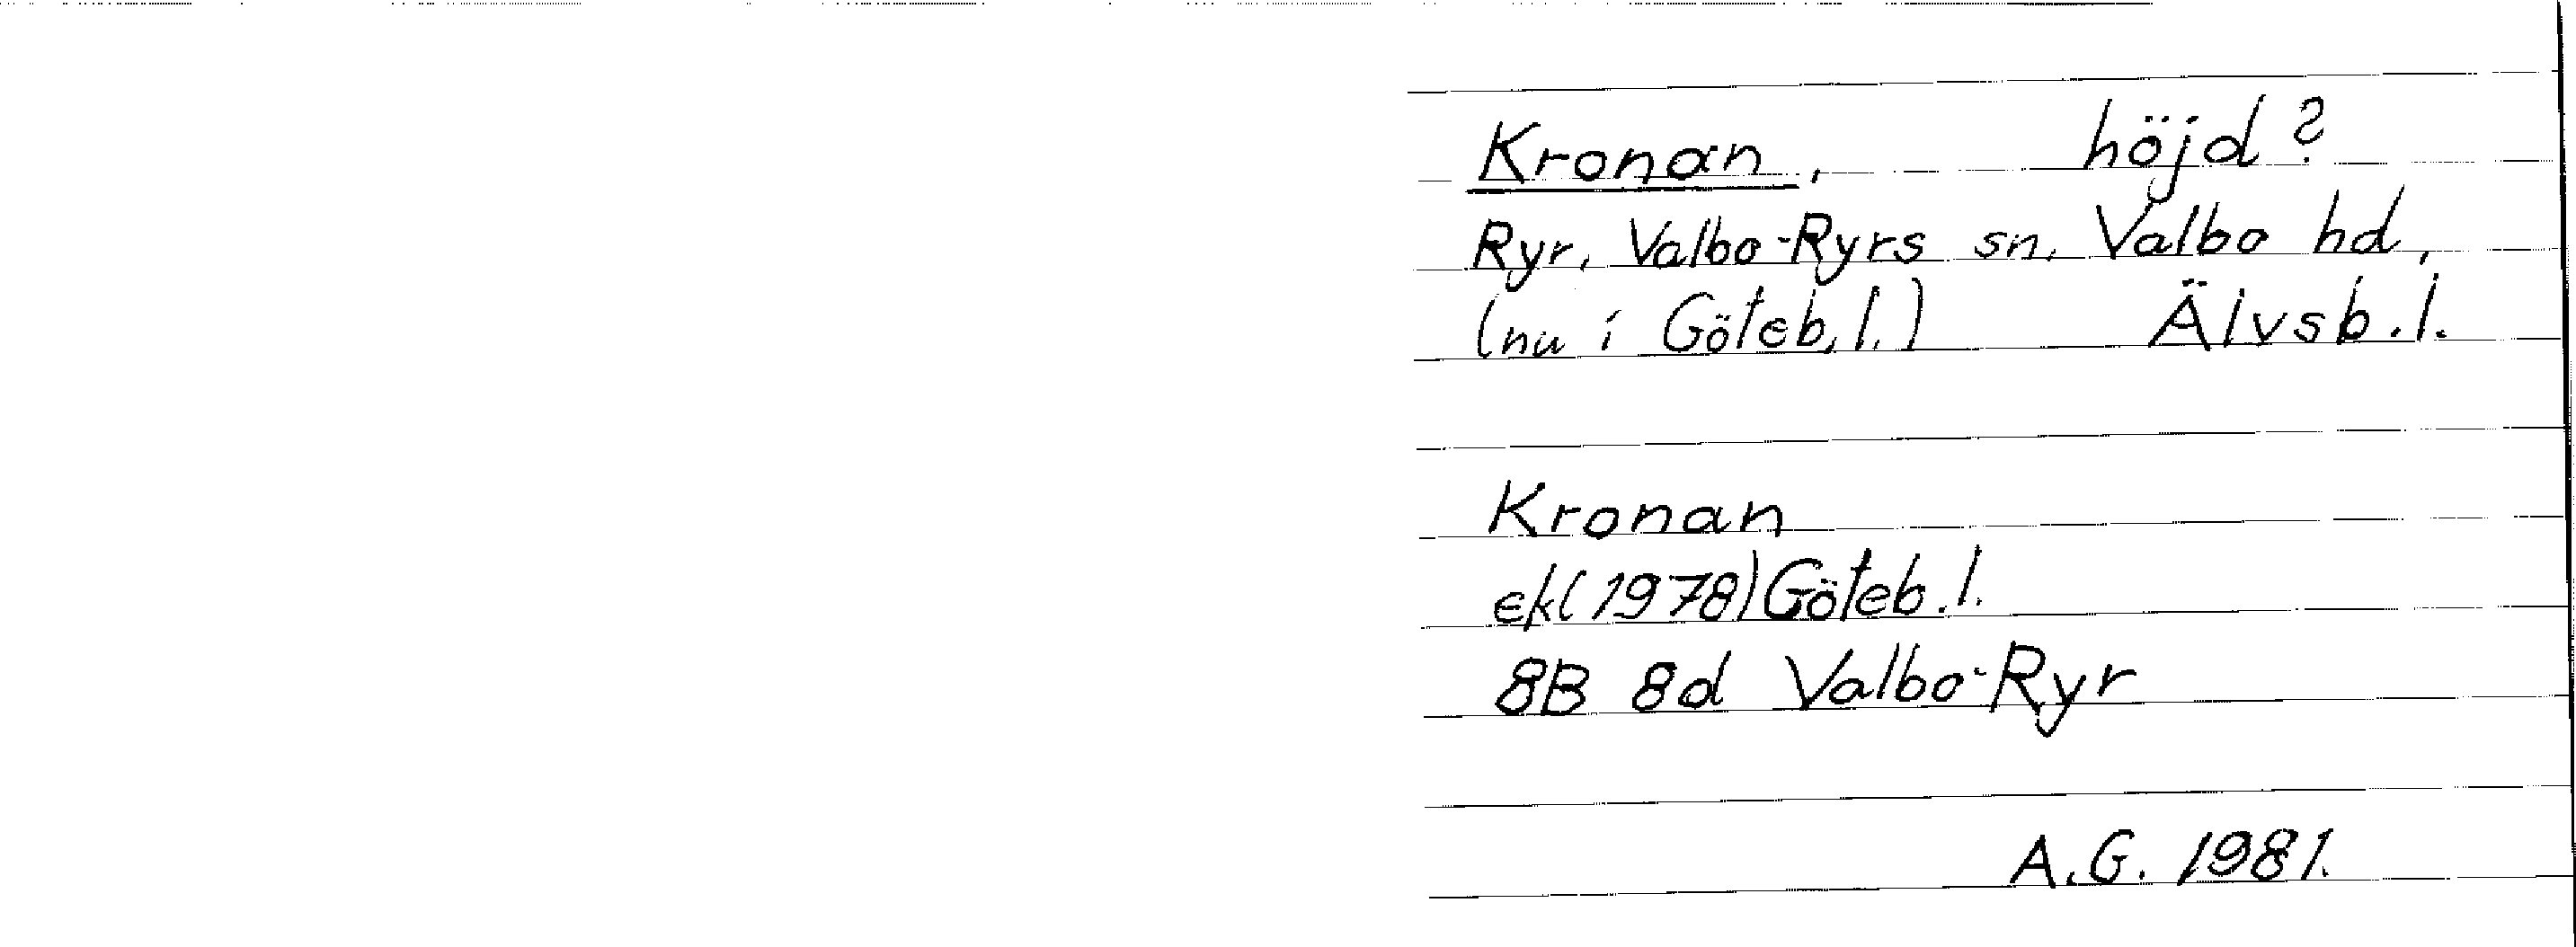 Kronan, höjd?
Ryr, Valbo-Ryrs sn, Valbo hd,
(nu i Göteb. l.) Älvsb. l.
Kronan
ekl (1978) Göteb. l.
8B 8d Valbo-Ryr
A.G. 1981.